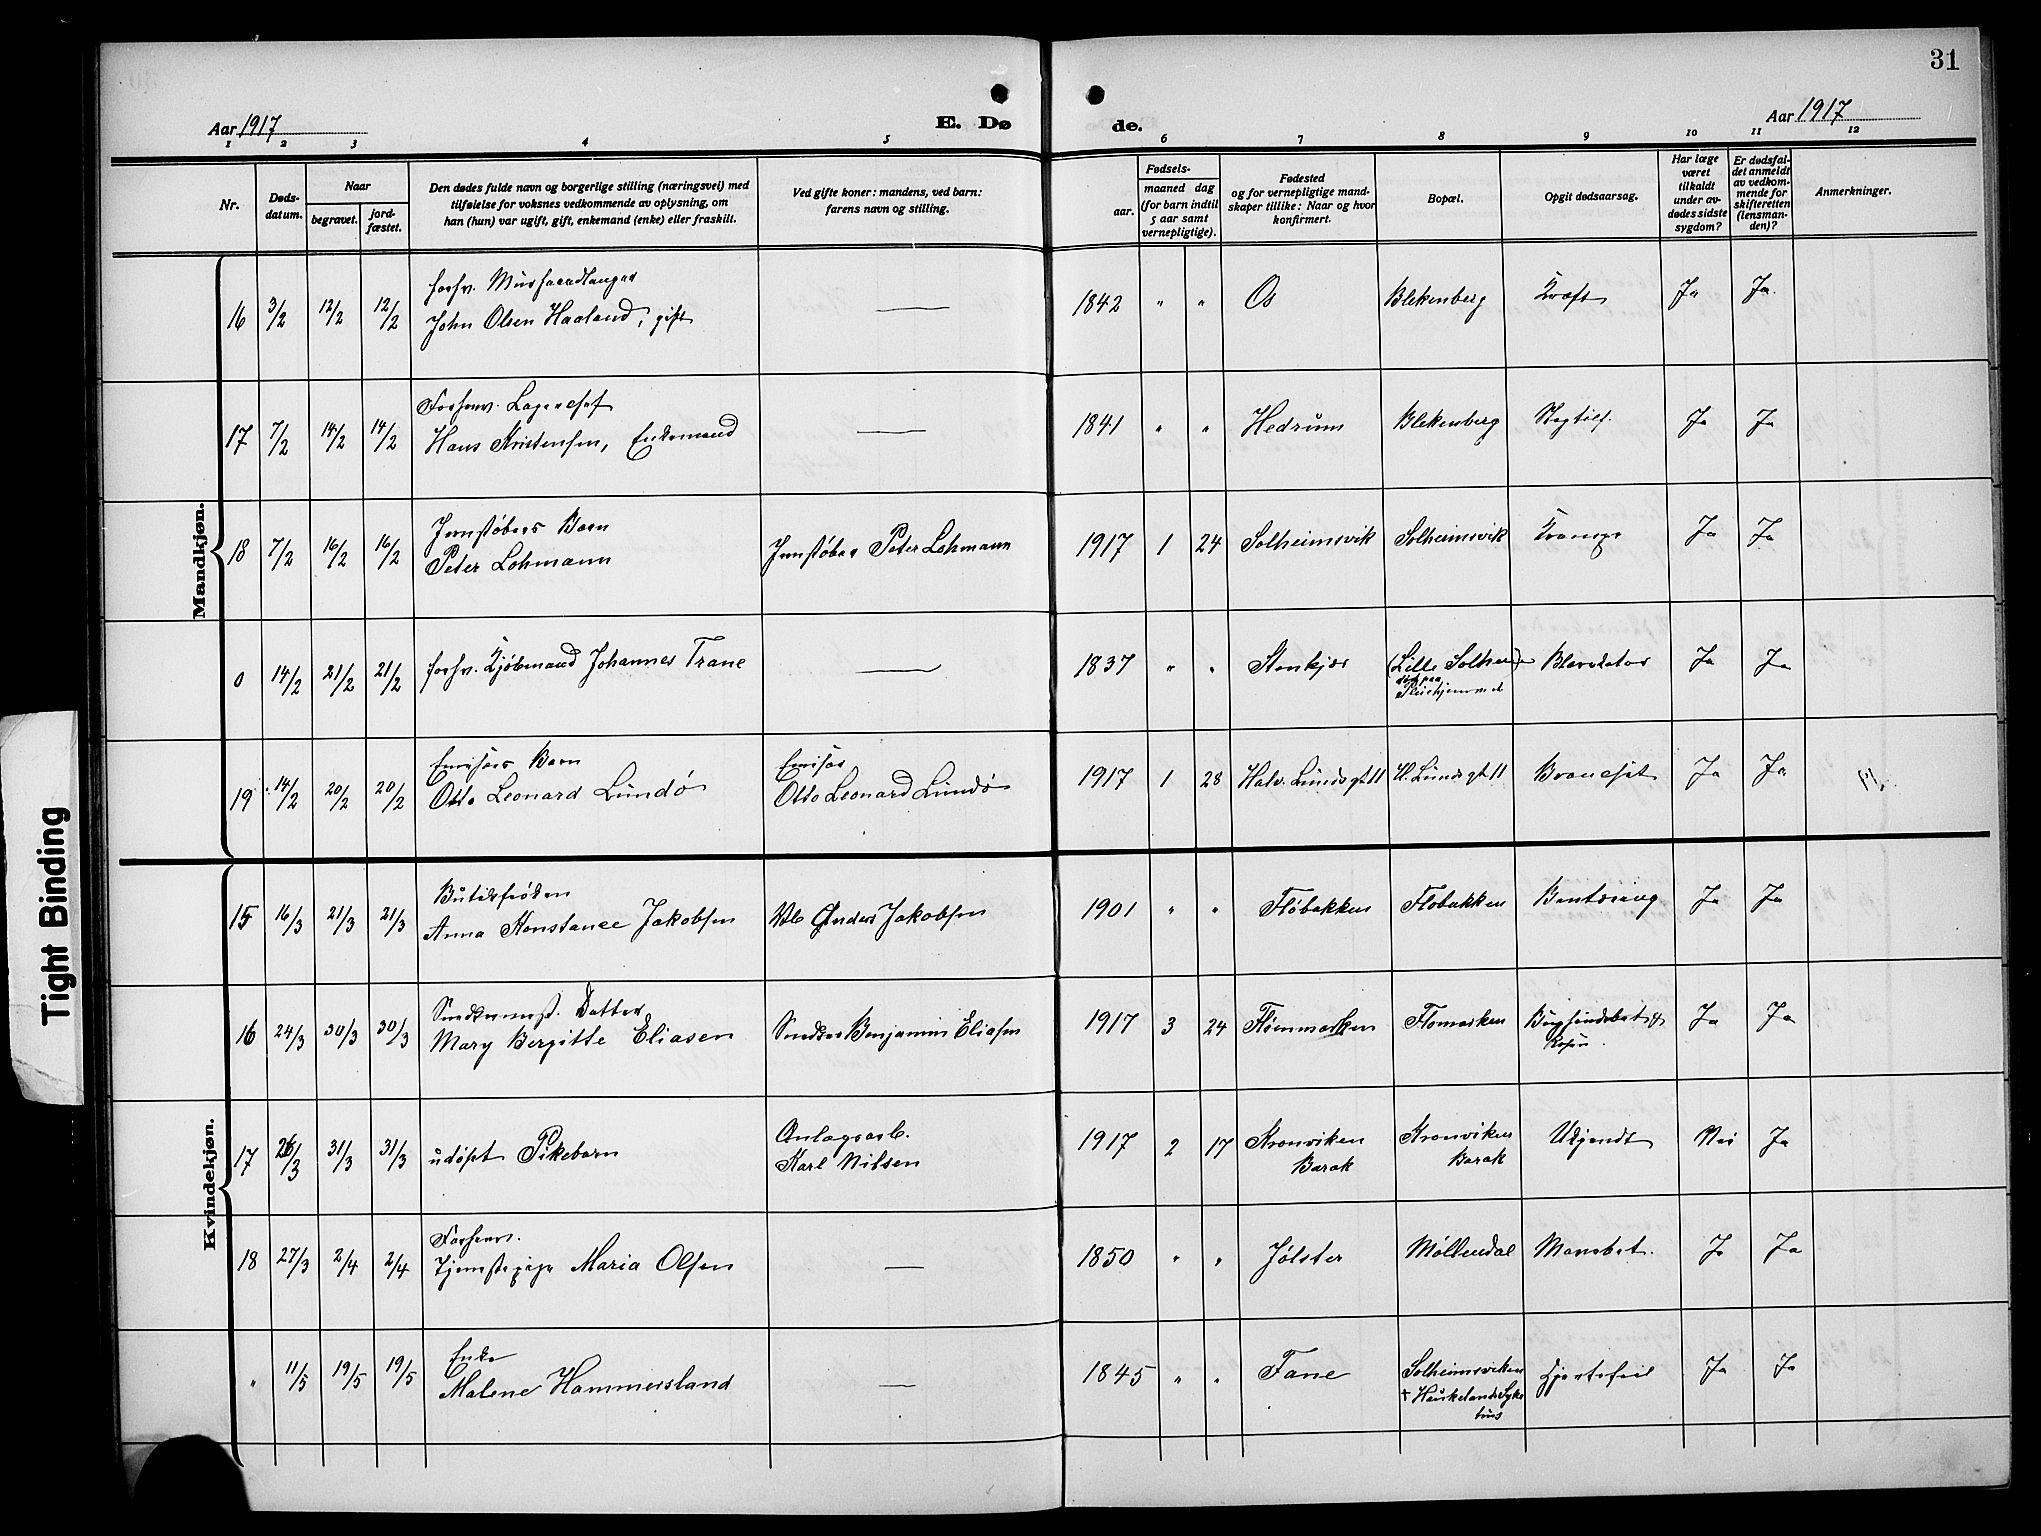 31
Aar 1917
E. Dø
de.
Aar 1917
1 2 3 4 5 6 7 8 9 10 11 12
Nr.
Døds-
datum.
Naar
begravet.
jord-
fæstet.
Den dødes fulde navn og borgerlige stilling (næringsvei) med
tilføielse for voksnes vedkommende av oplysning, om
han (hun) var ugift, gift, enkemand (enke) eller fraskilt.
Ved gifte koner: mandens, ved barn:
farens navn og stilling.
Fødsels-
aar.
maaned dag
(for barn indtil
5 aar samt
vernepligtige).
Fødested
og for vernepligtige mand-
skaper tillike: Naar og hvor
konfirmert.
Bopæl.
Opgit dødsaarsag.
Har læge
været
tilkaldt
under av-
dødes sidste
sygdom?
Er dødsfal-
det anmeldt
av vedkom-
mende for
skifteretten
(lensman-
den)?
Anmerkninger.
Mandkjøn.
forhv.
16 3/2 12/2 12/2 John Olsen Haaland, gift — 1842 " " Os Blekenberg Kræft Ja Ja
Forhenv. Lagerchef
17 7/2 14/2 14/2 Hans Kristensen, Enkemand — 1841 " " Hedrum Blekenberg Ja Ja
Jernstøbers Barn
18 7/2 16/2 16/2 Peter Lohmann Jernstøber Peter Lohmann 1917 1 24 Solheimsvik Solheimsvik Krampe Ja Ja
0 14/2 21/2 21/2 forhv. Kjøbmand Johannes Trane — 1837 " " Stenkjær (Lille Solheim)
død paa
Pleiehjemmet
Ja Ja
Barn
19 14/2 20/2 20/2 Otto Leonard Lundø Otto Leonard Lundø 1917 1 28 Halv. Lundsgt 11 H. Lundsgt 11 Ja Ja
Kvindekjøn.
Butikfrøken
15 16/3 21/3 21/3 Anna Konstance Jakobsen Anders Jakobsen 1901 " " Fløbakken Fløbakken Ja Ja
Snekkermest. Datter
16 24/3 30/3 30/3 Mary Bergitte Eliasen Snekker Benjamin Eliasen 1917 3 24 Ja Ja
17 26/3 31/3 31/3 udøpt Pikebarn Anlægsarb.
Karl Nilsen
1917 2 17 Kronviken
Barak
Kronviken
Barak
Ukjendt Nei Ja
Forhenv.
18 27/3 2/4 2/4 Tjenestepige Maria Olsen — 1850 " " Jølster Møllendal Ja Ja
Enke
" 11/5 19/5 19/5 Malene Hammersland — 1845 " " Fane Solheimsviken
† Haukelands Syke
hus
Hjertefeil Ja Ja
Tight Binding